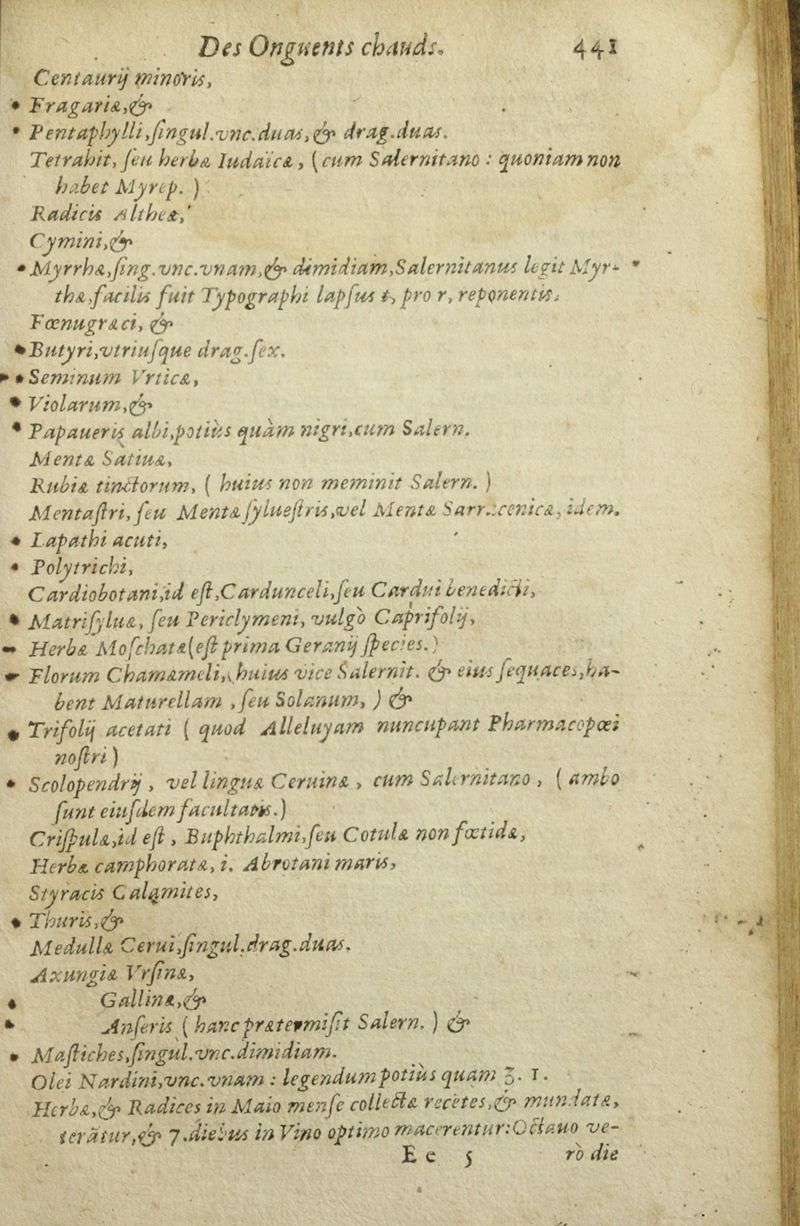 Des Onguents chauds. 441
Centaurij minoris,
* Fragariæ, &
* Pentaphylli, singul. vnc. duas, & drag. duas.
Tetrahit, seu herbæ Iudaïcæ, (cum Salernitano : quoniam non
habet Myrep. )
Radicis Altheæ,
Cymini, &
* Myrrhæ, sing. vnc. vnam, & dimidiam, Salernitanus legit Myr- *
thæ, facilis fuit Typographi lapsus t, pro r, reponentis.
Fœnugræci, &
* Butyri, vtriusque drag. sex.
* Seminum Vrticæ,
* Violarum, &
* Papaueris albi, potiùs quàm nigri, cum Salern.
Mentæ Satiuæ,
Rubiæ tinctorum, ( huius non meminit Salern. )
Mentastri, seu Mentæ syluestris, vel Mentæ Sarracenicæ, idem.
* Lapathi acuti,
* Polytrichi,
Cardiobotani, id est, Cardunceli, seu Cardui benedicti,
* Matrisyluæ, seu Periclymeni, vulgò Caprifolij,
Herbæ Moschatæ (est prima Geranij species.)
* Florum Chamæmeli, (huius vice Salernit. & eius sequaces, ha-
bent Maturellam, seu Solanum, ) &
* Trifolij acetati ( quod Alleluyam nuncupant Pharmacopœi
nostri )
* Scolopendrij, vel linguæ Ceruinæ, cum Salernitano, ( ambo
sunt eiusdem facultatis.)
Crispulæ, id est, Buphthalmi, seu Cotulæ non fœtidæ,
Herbæ camphoratæ, i. Abrotani maris,
Styracis Calamites,
* Thuris, &
Medullæ Cerui, singul. drag. duas.
Axungiæ Vrsinæ,
* Gallinæ, &
* Anseris ( hanc prætermisit Salern. ) &
* Mastiches, singul. vnc. dimidiam.
Olei Nardini, vnc. vnam : legendum potiùs quam ʒ. 1.
Herbæ, & Radices in Maio mense collectæ recẽtes, & mundatæ,
terãtur, & 7. diebus in Vino optimo macerentur: Octauo ve-
E e 5 rò die